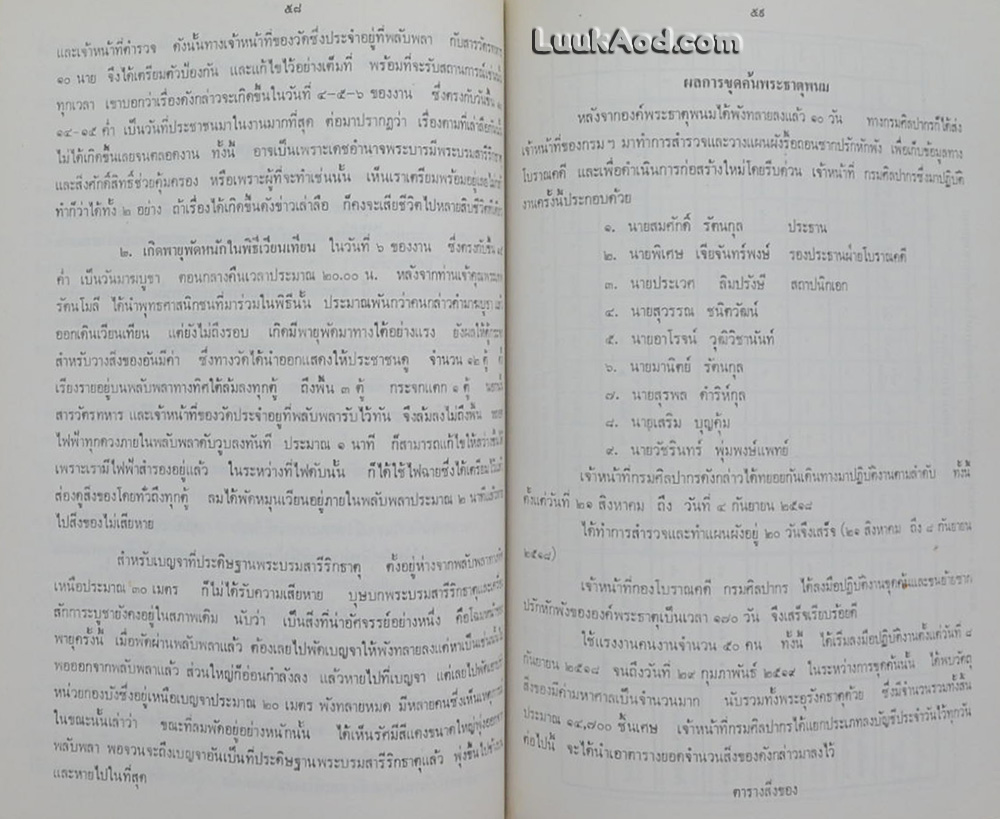 ๕๘
และเจ้าหน้าที่ตำรวจ ดังนั้นทางเจ้าหน้าที่ของวัดซึ่งประจำอยู่ที่พลับพลา กับสารวัตรทหาร
๑๐ นาย จึงได้เตรียมตัวป้องกัน และแก้ไขไว้อย่างเต็มที่ พร้อมที่จะรับสถานการณ์เช่นนั้น
ทุกเวลา เขาบอกว่าเรื่องดังกล่าวจะเกิดขึ้นในวันที่ ๔-๕-๖ ของงาน ซึ่งตรงกับวันขึ้น
๑๔-๑๕ ค่ำ เป็นวันที่ประชาชนมาในงานมากที่สุด ต่อมาปรากฏว่า เรื่องตามที่เล่าลือกันนั้น
ไม่ได้เกิดขึ้นเลยจนตลอดงาน ทั้งนี้ อาจเป็นเพราะเดชอำนาจพระบารมีพระบรมสารีริกธาตุ
และสิ่งศักดิ์สิทธิ์ช่วยคุ้มครอง หรือเพราะผู้ที่จะทำเช่นนั้น เห็นเราเตรียมพร้อมอยู่เสมอ
ทำก็ว่าได้ทั้ง ๒ อย่าง ถ้าเรื่องได้เกิดขึ้นดังข่าวเล่าลือ ก็คงจะเสียชีวิตไปหลายสิบชีวิต
๒. เกิดพายุพัดหนักในพิธีเวียนเทียน ในวันที่ ๖ ของงาน ซึ่งตรงกับขึ้น ๑๕
ค่ำ เป็นวันมาฆบูชา ตอนกลางคืนเวลาประมาณ ๒๐.๐๐ น. หลังจากท่านเจ้าคุณพระเทพ
รัตนโมลี ได้นำพุทธศาสนิกชนที่มาร่วมในพิธีนั้น ประมาณพันกว่าคนกล่าวคำมาฆบูชา แล้ว
ออกเดินเวียนเทียน แต่ยังไม่ถึงรอบ เกิดมีพายุพัดมาทางใต้อย่างแรง ยังผลให้ตู้กระจก
สำหรับวางสิ่งของอันมีค่า ซึ่งทางวัดได้นำออกแสดงให้ประชาชนดู จำนวน ๑๒ ตู้
เรียงรายอยู่บนพลับพลาทางทิศใต้ล้มลงทุกตู้ ถึงพื้น ๓ ตู้ กระจกแตก ๑ ตู้ นอกนั้น
สารวัตรทหาร และเจ้าหน้าที่ของวัดประจำอยู่ที่พลับพลารับไว้ทัน จึงล้มลงไม่ถึงพื้น
ไฟฟ้าทุกดวงภายในพลับพลาดับวูบลงทันที ประมาณ ๑ นาที ก็สามารถแก้ไขให้สว่างขึ้นได้
เพราะเรามีไฟฟ้าสำรองอยู่แล้ว ในระหว่างที่ไฟดับนั้น ก็ได้ใช้ไฟฉายซึ่งได้เตรียมไว้แล้ว
ส่องดูสิ่งของโดยทั่วถึงทุกตู้ ลมได้พัดหมุนเวียนอยู่ภายในพลับพลาประมาณ ๒ นาทีแล้วหาย
ไปสิ่งของไม่เสียหาย
สำหรับเบญจาที่ประดิษฐานพระบรมสารีริกธาตุ ตั้งอยู่ห่างจากพลับพลาทางทิศ
เหนือประมาณ ๓๐ เมตร ก็ไม่ได้รับความเสียหาย บุษบกพระบรมสารีริกธาตุและเครื่อง
สักการะบูชายังคงอยู่ในสภาพเดิม นับว่า เป็นสิ่งที่น่าอัศจรรย์อย่างหนึ่ง คือโฉมหน้าของ
พายุครั้งนี้ เมื่อพัดผ่านพลับพลาแล้ว ต้องเลยไปพัดเบญจาให้พังทลายลงแต่หาเป็นเช่นนั้นไม่
พอออกจากพลับพลาแล้ว ส่วนใหญ่ก็อ่อนกำลังลง แล้วหายไปที่เบญจา แต่เลยไปพัดเอาเต็นท์
หน่วยกองบังซึ่งอยู่เหนือเบญจาประมาณ ๒๐ เมตร พังทลายหมด มีหลายคนซึ่งเห็นเหตุการณ์
ในขณะนั้นเล่าว่า ขณะที่ลมพัดอยู่อย่างหนักนั้น ได้เห็นรัศมีสีแดงขนาดใหญ่พุ่งออกจาก
พลับพลา พอจวนจะถึงเบญจาอันเป็นที่ประดิษฐานพระบรมสารีริกธาตุแล้ว พุ่งขึ้นไปข้างบน
และหายไปในที่สุด
LuukAod.com
๕๙
ผลการขุดค้นพระธาตุพนม
หลังจากองค์พระธาตุพนมได้พังทลายลงแล้ว ๑๐ วัน ทางกรมศิลปากรก็ได้ส่ง
เจ้าหน้าที่ของกรม ฯ มาทำการสำรวจและวางแผนผังรื้อถอนซากปรักหักพัง เพื่อเก็บข้อมูลทาง
โบราณคดี และเพื่อดำเนินการก่อสร้างใหม่โดยรีบด่วน เจ้าหน้าที่ กรมศิลปากรซึ่งมาปฏิบัติ
งานครั้งนี้ประกอบด้วย
๑. นายสมศักดิ์ รัตนกุล ประธาน
๒. นายพิเศษ เจียจันทร์พงษ์ รองประธานฝ่ายโบราณคดี
๓. นายประเวศ ลิมปรังษี สถาปนิกเอก
๔. นายสุวรรณ ชนิตวัฒน์
๕. นายอาโรจน์ วุฒิวิชานันท์
๖. นายมานิตย์ รัตนกุล
๗. นายสุรพล ดำริห์กุล
๘. นายเสริม บุญคุ้ม
๙. นายวัชรินทร์ พุ่มพงษ์แพทย์
เจ้าหน้าที่กรมศิลปากรดังกล่าวได้ทยอยกันเดินทางมาปฏิบัติงานตามลำดับ ทั้งนี้
ตั้งแต่วันที่ ๒๑ สิงหาคม ถึง วันที่ ๔ กันยายน ๒๕๑๘
ได้ทำการสำรวจและทำแผนผังอยู่ ๒๐ วันจึงเสร็จ (๒๑ สิงหาคม ถึง ๘ กันยายน
๒๕๑๘)
เจ้าหน้าที่กองโบราณคดี กรมศิลปากร ได้ลงมือปฏิบัติงานขุดค้นและขนย้ายซาก
ปรักหักพังขององค์พระธาตุเป็นเวลา ๑๗๐ วัน จึงเสร็จเรียบร้อยดี
ใช้แรงงานคนงานจำนวน ๕๐ คน ทั้งนี้ ได้เริ่มลงมือปฏิบัติงานตั้งแต่วันที่ ๘
กันยายน ๒๕๑๘ จนถึงวันที่ ๒๙ กุมภาพันธ์ ๒๕๑๙ ในระหว่างการขุดค้นนั้น ได้พบวัตถุ
สิ่งของมีค่ามหาศาลเป็นจำนวนมาก นับรวมทั้งพระอุรังคธาตุด้วย ซึ่งมีจำนวนรวมทั้งสิ้น
ประมาณ ๑๔,๗๐๐ ชิ้นเศษ เจ้าหน้าที่กรมศิลปากรได้แยกประเภทลงบัญชีประจำวันไว้ทุกวัน
ต่อไปนี้ จะได้นำเอาตารางยอดจำนวนสิ่งของดังกล่าวมาลงไว้
ตารางสิ่งของ